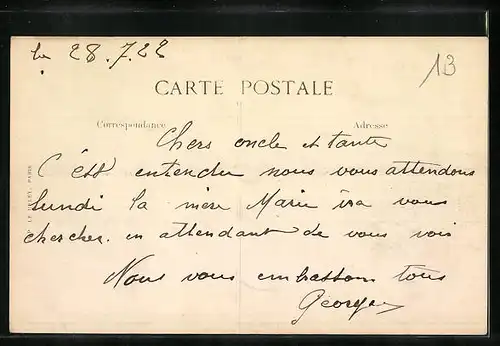 le 28.7.22
13
CARTE POSTALE
Correspondance
Adresse
Chers oncle et tante
C'est entendu nous vous attendons
lundi la mère Marie ira vous
chercher. en attendant de vous voir
Nous vous embrassons tous
Georges